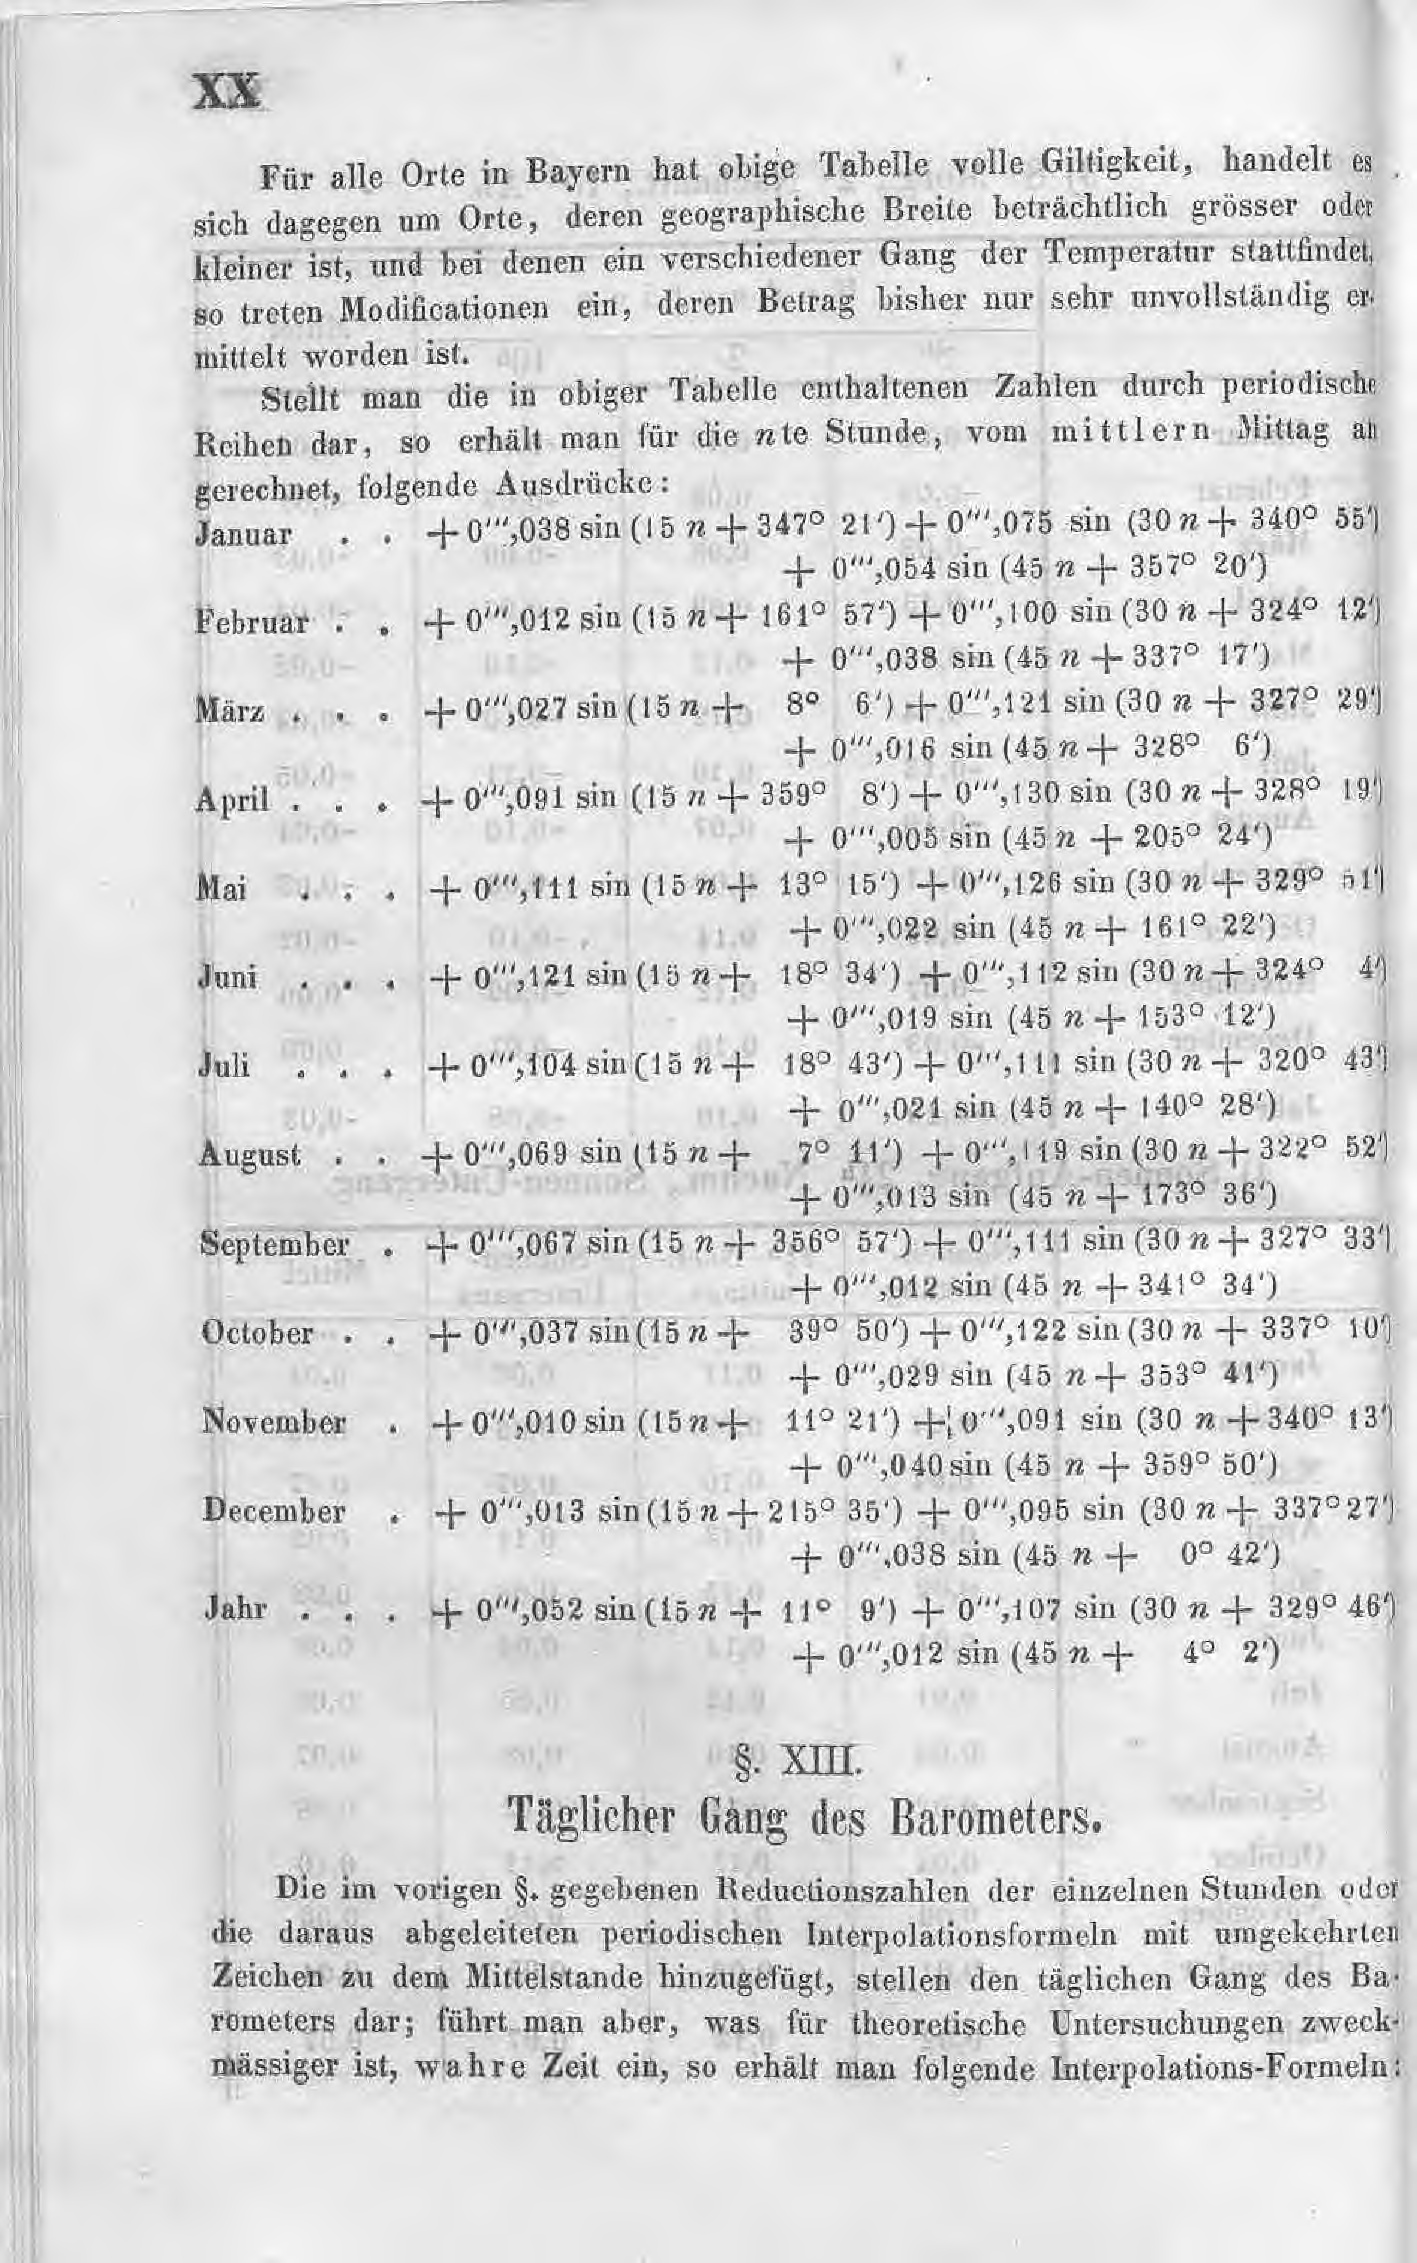 XX
Für alle Orte in Bayern hat obige Tabelle volle Giltigkeit, handelt es
sich dagegen um Orte, deren geographische Breite beträchtlich grösser oder
kleiner ist, und bei denen ein verschiedener Gang der Temperatur stattfindet,
so treten Modificationen ein, deren Betrag bisher nur sehr unvollständig er-
mittelt worden ist.
Stellt man die in obiger Tabelle enthaltenen Zahlen durch periodische
Reihen dar, so erhält man für die nte Stunde, vom mittlern Mittag an
gerechnet, folgende Ausdrücke:
Januar . . + 0‴,038 sin (15 n + 347° 21′) + 0‴,075 sin (30 n + 340° 55′)
+ 0‴,054 sin (45 n + 357° 20′)
Februar . . + 0‴,012 sin (15 n + 161° 57′) + 0‴,100 sin (30 n + 324° 12′)
+ 0‴,038 sin (45 n + 337° 17′)
März . . . + 0‴,027 sin (15 n + 8° 6′) + 0‴,121 sin (30 n + 327° 29′)
+ 0‴,016 sin (45 n + 328° 6′)
April . . . + 0‴,091 sin (15 n + 359° 8′) + 0‴,130 sin (30 n + 328° 19′)
+ 0‴,005 sin (45 n + 205° 24′)
Mai . . . + 0‴,111 sin (15 n + 13° 15′) + 0‴,126 sin (30 n + 329° 51′)
+ 0‴,022 sin (45 n + 161° 22′)
Juni . . . + 0‴,121 sin (15 n + 18° 34′) + 0‴,112 sin (30 n + 324° 4′)
+ 0‴,019 sin (45 n + 153° 12′)
Juli . . . + 0‴,104 sin (15 n + 18° 43′) + 0‴,111 sin (30 n + 320° 43′)
+ 0‴,021 sin (45 n + 140° 28′)
August . . + 0‴,069 sin (15 n + 7° 11′) + 0‴,119 sin (30 n + 322° 52′)
+ 0‴,013 sin (45 n + 173° 36′)
September . + 0‴,067 sin (15 n + 356° 57′) + 0‴,111 sin (30 n + 327° 33′)
+ 0‴,012 sin (45 n + 341° 34′)
October . . + 0‴,037 sin (15 n + 39° 50′) + 0‴,122 sin (30 n + 337° 10′)
+ 0‴,029 sin (45 n + 353° 41′)
November . + 0‴,010 sin (15 n + 11° 21′) + 0‴,091 sin (30 n + 340° 13′)
+ 0‴,040 sin (45 n + 359° 50′)
December . + 0‴,013 sin (15 n + 215° 35′) + 0‴,095 sin (30 n + 337° 27′)
+ 0‴,038 sin (45 n + 0° 42′)
Jahr . . . + 0‴,052 sin (15 n + 11° 9′) + 0‴,107 sin (30 n + 329° 46′)
+ 0‴,012 sin (45 n + 4° 2′)
§. XIII.
Täglicher Gang des Barometers.
Die im vorigen §. gegebenen Reductionszahlen der einzelnen Stunden oder
die daraus abgeleiteten periodischen Interpolationsformeln mit umgekehrten
Zeichen zu dem Mittelstande hinzugefügt, stellen den täglichen Gang des Ba-
rometers dar; führt man aber, was für theoretische Untersuchungen zweck-
mässiger ist, wahre Zeit ein, so erhält man folgende Interpolations-Formeln: